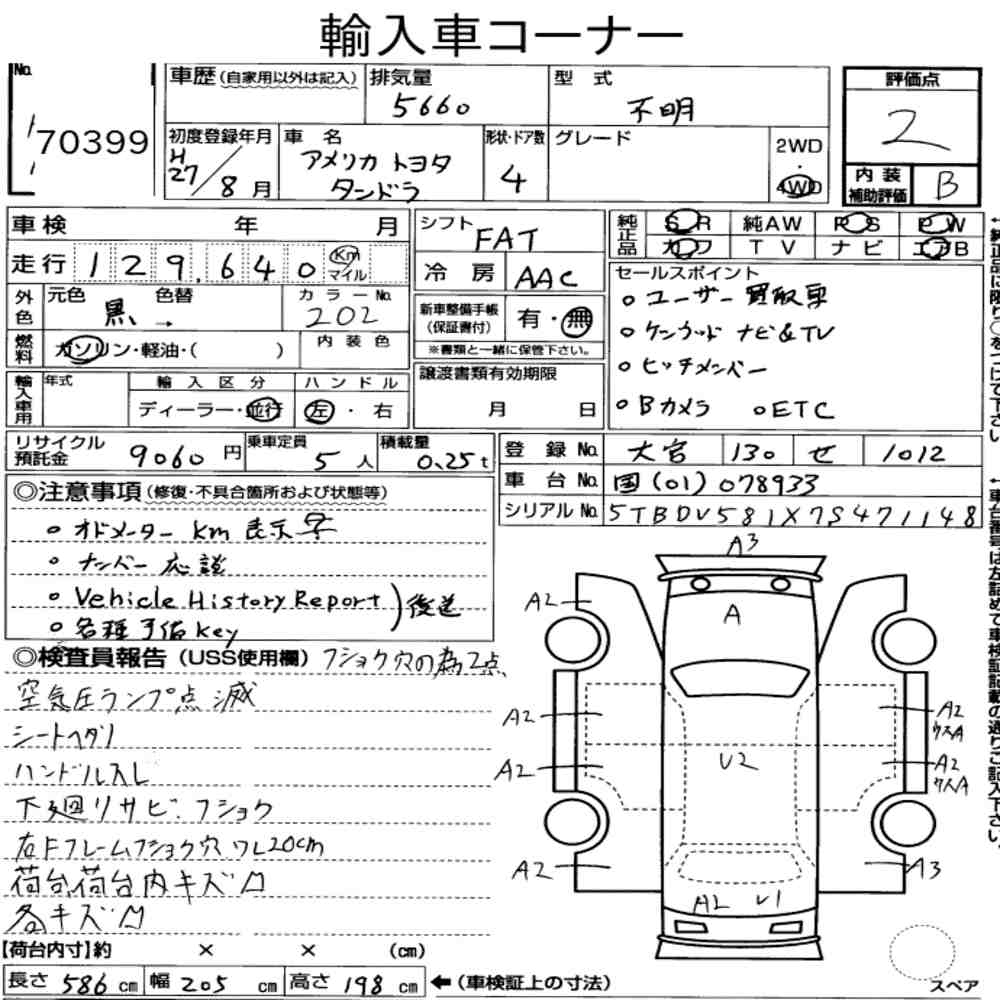 輸入車コーナー
No. 70399
車歴(自家用以外は記入)
排気量 5660
型式 不明
評価点 2
初度登録年月 H27/8月
車名 アメリカ トヨタ タンドラ
形状・ドア数 4
グレード
2WD・4WD
内装補助評価 B
車検 年 月
走行 129,640 Km マイル
シフト FAT
冷房 AAC
純正品 SR 純AW PS PW
カワ TV ナビ エアB
外色 元色 黒 → 色替
カラーNo. 202
燃料 ガソリン・軽油・( )
内装色
新車整備手帳(保証書付) 有・無
※書類と一緒に保管下さい。
セールスポイント
○ユーザー買取車
○ケンウッド ナビ&TV
○ヒッチメンバー
○Bカメラ ○ETC
輸入車用 年式
輸入区分 ディーラー・並行
ハンドル 左・右
譲渡書類有効期限 月 日
リサイクル預託金 9060円
乗車定員 5人
積載量 0.25t
登録No. 大宮 130 せ 1012
車台No. 国(01)078933
シリアルNo. 5TBDV581X7S471148
◎注意事項(修復・不具合箇所および状態等)
○オドメーター Km表示
○ナンバー応談
○Vehicle History Report
○各種 予備key
)後送
◎検査員報告(USS使用欄) フショク穴の為2点
空気圧ランプ点滅
シートヘタリ
ハンドルスレ
下廻リサビ・フショク
右Fフレームフショク穴ワレ20cm
荷台荷台内キズ凹
各キズ凹
A3
A2 A
A2 A2 ウスA
A2 U2 A2 ウスA
A2 A3
A2 U1
スペア
【荷台内寸】約 × × (cm)
長さ 586cm 幅 205cm 高さ 198cm ←(車検証上の寸法)
←純正品に限り○をつけて下さい。
←車台番号は左詰めで車検証記載の通りご記入下さい。